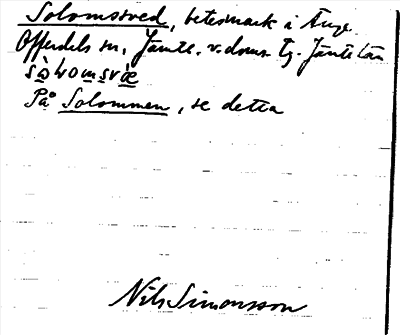 Solomssved, betesmark i Ånge
Offerdals sn, Jämtl. v. doms. tg. Jämtl. län
sò̀lομsvæ
På Solommen, se detta
Nils Simonsson